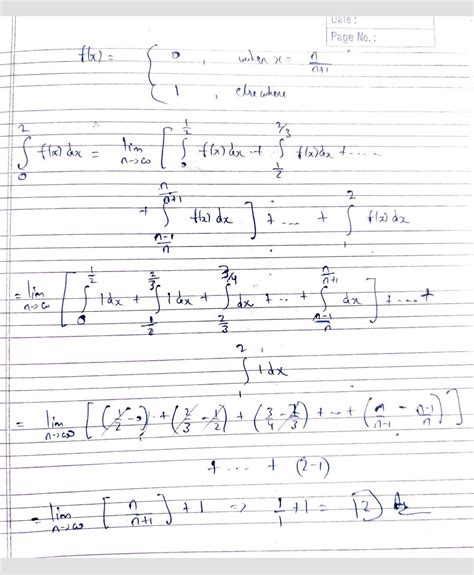 Date :
Page No. :
f(x) = { 0 , when x = n/(n+1)
1 , elsewhere
∫_0^2 f(x) dx = lim_{n→∞} [ ∫_0^{1/2} f(x) dx + ∫_{1/2}^{2/3} f(x) dx + .....
+ ∫_{(n-1)/n}^{n/(n+1)} f(x) dx ] + ... + ∫_1^2 f(x) dx
= lim_{n→∞} [ ∫_0^{1/2} 1 dx + ∫_{1/2}^{2/3} 1 dx + ∫_{2/3}^{3/4} dx + .. + ∫_{(n-1)/n}^{n/(n+1)} dx ] + ... +
∫_1^2 1 dx
= lim_{n→∞} [ (1/2 - 0) + (2/3 - 1/2) + (3/4 - 2/3) + ... + (n/(n-1) - (n-1)/n) ]
+ ... + (2-1)
= lim_{n→∞} [ n/(n+1) ] + 1 ⇒ 1/1 + 1 = 2